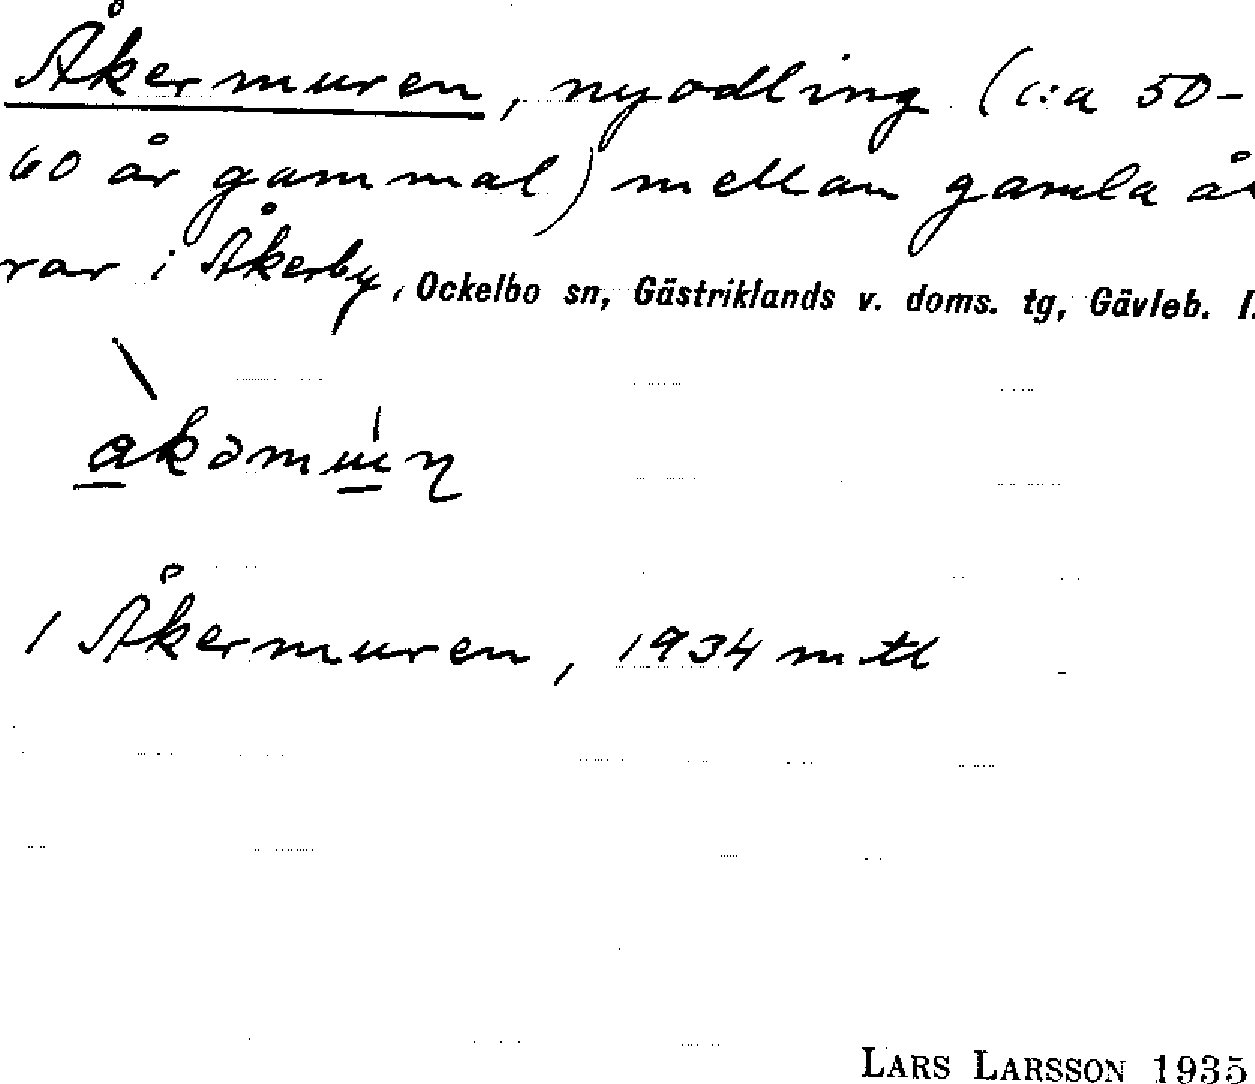 Åkermuren, nyodling (c:a 50-
60 år gammal) mellan gamla åk
rar i Åkerby, Ockelbo sn, Gästriklands v. doms. tg, Gävleb. l.
1 Åkermuren, 1934 mtl
LARS LARSSON 1935